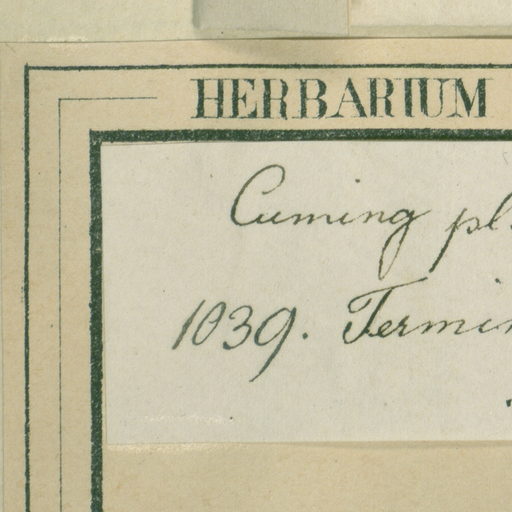 HERBARIUM
Cuming pl.
1039. Termin